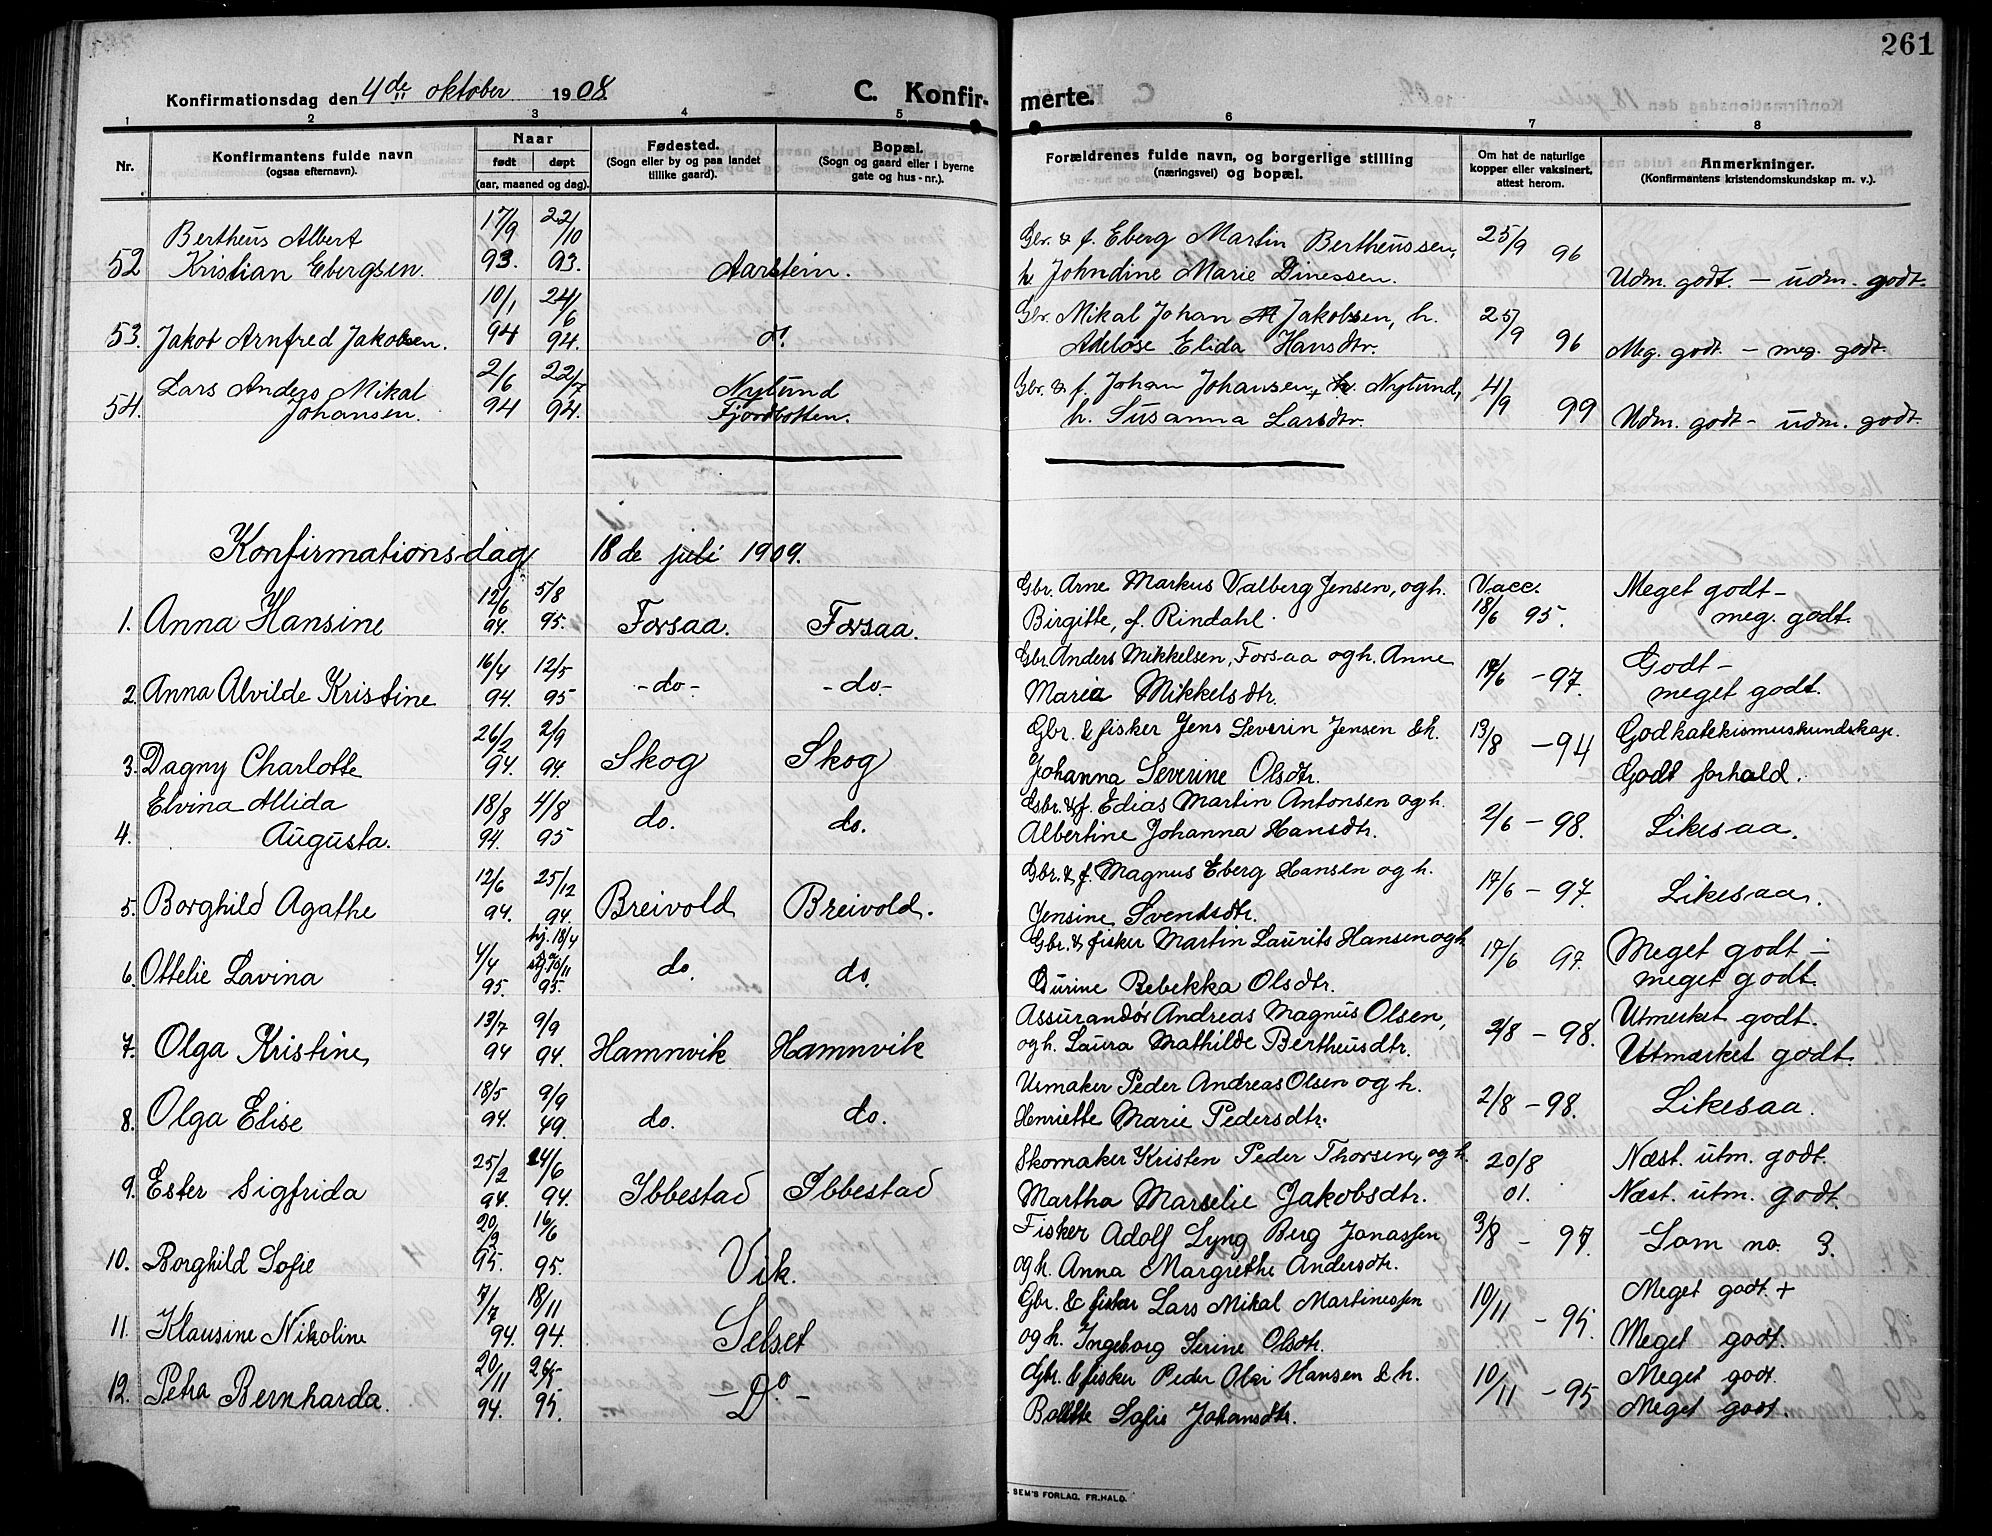 261
Konfirmationsdag den 4de oktober 1908. C. Konfirmerte.
1 2 3 4 5 6 7 8
Nr. Konfirmantens fulde navn (ogsaa efternavn). Naar født døpt (aar, maaned og dag). Fødested. (Sogn eller by og paa landet tillike gaard). Bopæl. (Sogn og gaard eller i byerne gate og hus-nr.). Forældrenes fulde navn, og borgerlige stilling (næringsvei) og bopæl. Om hat de naturlige kopper eller vaksinert, attest herom. Anmerkninger. (Konfirmantens kristendomskundskap m. v.).
Bertheus Albert 17/9 22/10 Gbr. & f. Eberg Martin Bertheussen, 25/9 96
52 Kristian Ebergsen. 93. 93. Aarstein. h. Johndine Marie Dinessen. Udm. godt. – udm. godt.
10/1 24/6 Gbr. Mikal Johan M Jakobsen, h. 25/9 96
53. Jakob Arnfred Jakobsen. 94 94. do. Adelöse Elida Hansdtr. Meg. godt. – meg. godt.
Lars Anders Mikal 2/6 22/7 Nylund Gbr. & f. Johan Johansen, Nylund, 4/9 99
54. Johansen. 94 94. Fjordbotten. h. Susanna Larsdtr. Udm. godt – udm. godt.
Konfirmationsdag 18de juli 1909.
12/6 5/8 Gbr. Arne Markus Valberg Jensen, og h. Vacc. Meget godt –
1. Anna Hansine 94. 95. Forsaa. Forsaa. Birgitte, f. Rindahl. 18/6 95. meg. godt.
16/4 12/5 Gbr. Anders Mikkelsen, Forsaa og h. Anne Godt –
2. Anna Alvilde Kristine 94. 95 -do- -do- Maria Mikkelsdtr. 17/6 – 97. meget godt.
26/2 2/9 Gbr. & fisker Jens Severin Jensen & h. 13/8 – 94 God katekismuskundskap.
3. Dagny Charlotte 94. 94. Skog Skog Johanna Severine Olsdtr. Godt forhold.
Elvina Alida 18/8 4/8 Gbr. & f. Edias Martin Antonsen og h.
4. Augusta. 94. 95 do. do. Albertine Johanna Hansdtr. 2/6 – 98. Likesaa.
12/6 25/12 Gbr. & f. Magnus Eberg Hansen og h.
5. Borghild Agathe 94. 94. Breivold Breivold. Jensine Svendsdtr. 17/6 – 97. Likesaa.
4/4 hj. 18/4 Gbr. & fisker Martin Laurits Hansen og h 17/6 97. Meget godt –
6. Ottelie Lavina 95. 10/11 95. do. do. Durine Rebekka Olsdtr. meget godt.
13/7 9/9 Assurandør Andreas Magnus Olsen, Utmerket godt.
7. Olga Kristine, 94 94. Hamnvik Hamnvik og h. Laura Mathilde Bertheusdtr. 2/8 – 98. Utmærket godt.
18/5 9/9 Urmaker Peder Andreas Olsen og h.
8. Olga Elise 94. 49. do. do. Henriette Marie Pedersdtr. 2/8 – 98. Likesaa.
25/2 24/6 Skomaker Kristen Peder Thorsen, og h. 20/8 Næst. utm. godt.
9. Ester Sigfrida 94. 94. Ibbestad Ibbestad Martha Marselie Jakobsdtr. 01. Næst. utm. godt.
20/2 16/6 Fisker Adolf Lyng Berg Jonassen 3/8 – 97. Som no. 3.
10. Borghild Sofie 95. 95. Vik. og h. Anna Margrethe Andersdtr.
7/7 18/11 Gbr. & fisker Lars Mikal Martinessen 10/11 – 95 Meget godt +
11. Klausine Nikoline 94. 94. Selset og h. Ingeborg Serine Olsdtr. Meget godt.
20/11 26/5 Gbr. & fisker Peder Olai Hansen & h. 10/11 – 95 Meget godt.
12. Petra Bernharda. 94. 95. – Do – Bolette Sofie Johansdtr. Meget godt.
SEM'S FORLAG, FR.HALD.